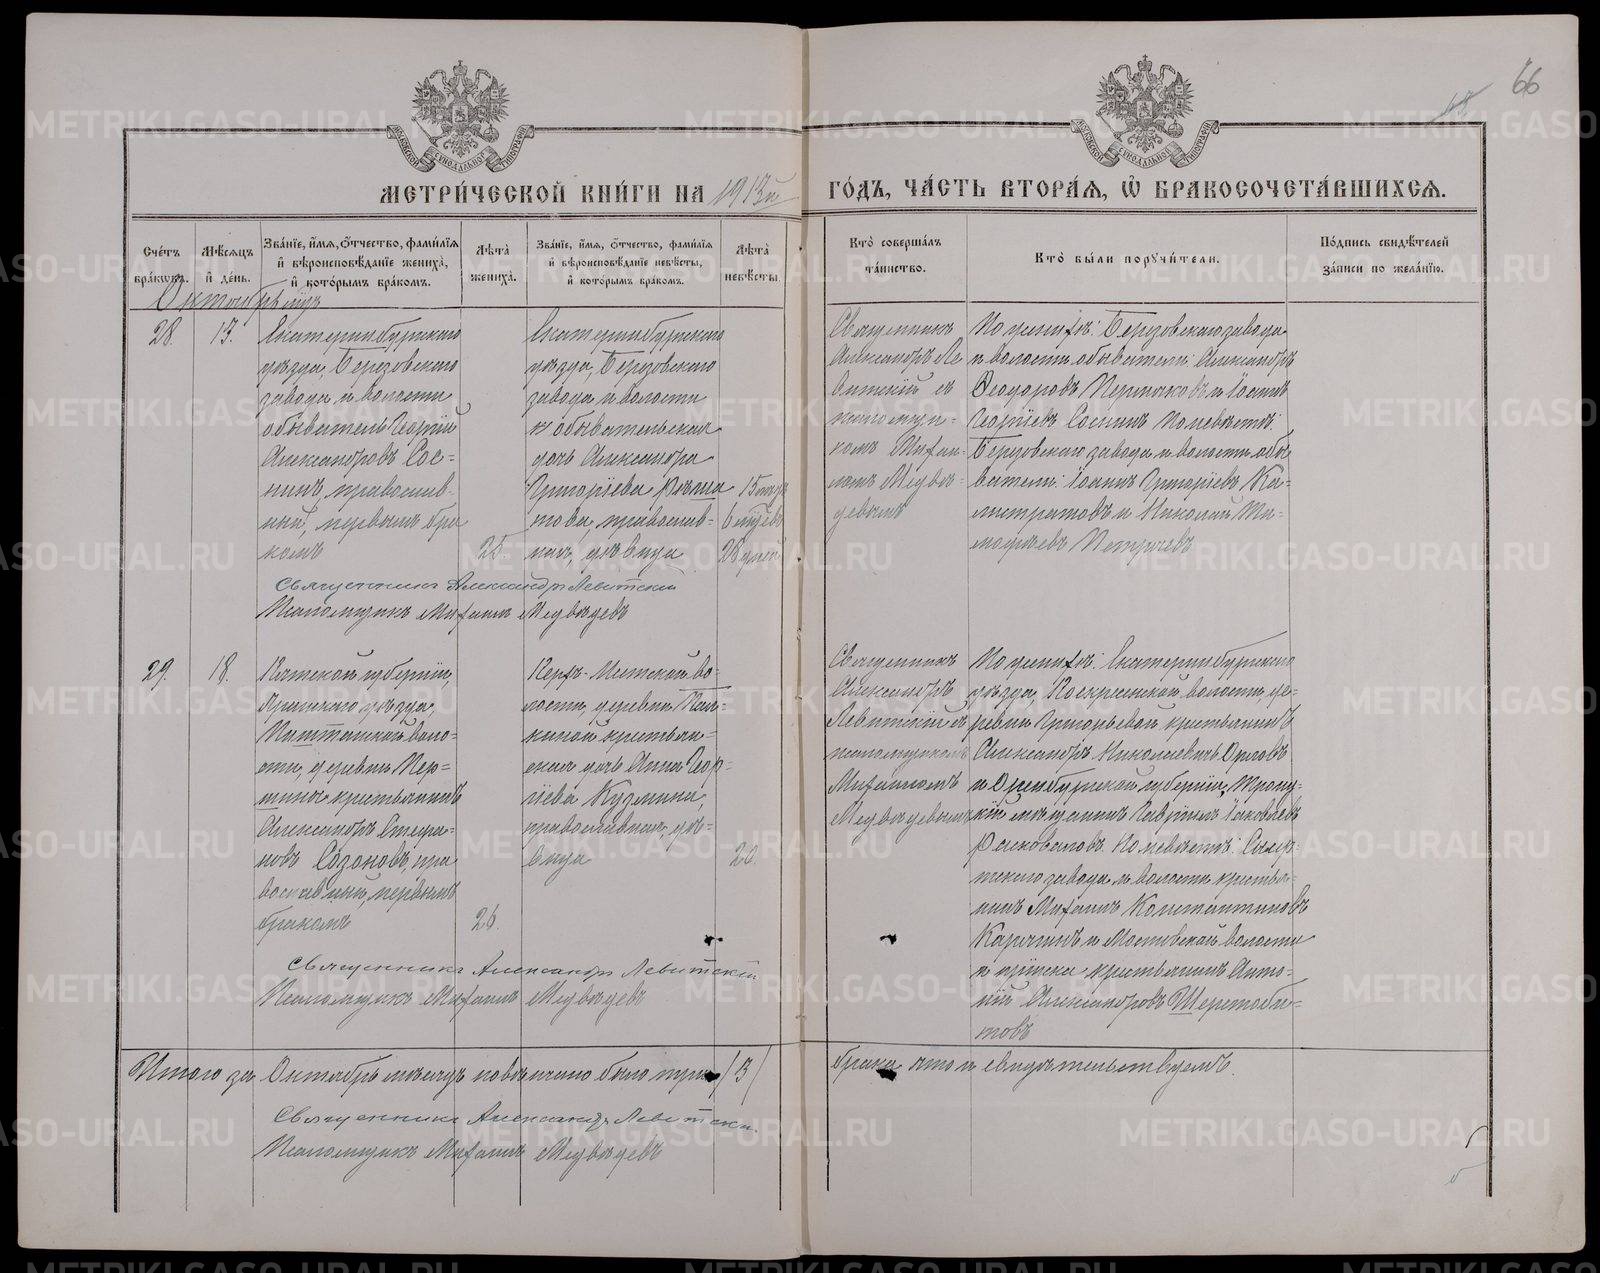 66
МОСКОВСКОЙ СѴНОДАЛЬНОЙ ТИПОГРАФІИ
МОСКОВСКОЙ СѴНОДАЛЬНОЙ ТИПОГРАФІИ
МЕТРИ́ЧЕСКОЙ КНИ́ГИ НА 1913й ГО́ДЪ, ЧА́СТЬ ВТОРА́Я, Ѡ҆ БРАКОСОЧЕТА́ВШИХСѦ.
Сче́тъ бра́ковъ.
Мѣ́сяцъ и҆ де́нь.
Зва́нїе, и҆́мя, ѻ҆́тчество, фами́лїя и҆ вѣроисповѣ́данїе жениха̀, и҆ кото́рымъ бра́комъ.
Лѣта̀ жениха̀.
Зва́нїе, и҆́мя, ѻ҆́тчество, фами́лїя и҆ вѣроисповѣ́данїе невѣ́сты, и҆ кото́рымъ бра́комъ.
Лѣта̀ невѣ́сты.
Кто̀ соверша́лъ та́инство.
Кто̀ бы́ли порꙋчи́тели.
По́дпись свидѣ́телей за́писи по жела́нїю.
Октябрь мѣс.
28.
13.
Екатеринбургскаго
уѣзда, Березовскаго
завода и волости
обыватель Георгій
Александровъ Сос=
нинъ, православ-
ный, первымъ бра
комъ
25.
Екатеринбургскаго
уѣзда, Березовскаго
завода и волости
обывательская
дочь Александра
Григоріева
това, православ=
ная, дѣвица
15 лѣтъ
6 мѣсяцевъ
28 дней
Священникъ
Александръ Ле
витскій съ
псаломщи=
комъ Михаи-
ломъ Медвѣ=
девымъ
По женихѣ: Березовскаго завода
и волости обыватели: Александръ
Ѳеодоровъ Перминовъ и Іосифъ
Георгіевъ Соснинъ. По невѣстѣ:
Березовскаго завода и волости обы
ватели: Іоаннъ Григоріевъ Ка=
листратовъ и Николай Ти=
моѳеевъ Петрачевъ
Священникъ Александръ Левитскій
Псаломщикъ Михаилъ Медвѣдевъ
29.
18.
Вятской губерніи,
уѣзда,
воло=
сти, деревни Пер=
крестьянинъ
Александръ Стефа=
новъ Созоновъ, пра
вославный, первымъ
бракомъ
26.
Верх-Исетской во=
лости, деревни Пал=
киной крестьян=
ская дочь Анна Геор=
гіева Кузмина,
православная, дѣ=
вица
20.
Священникъ
Александръ
Левитскій съ
псаломщикомъ
Михаиломъ
Медвѣдевымъ
По женихѣ: Екатеринбургскаго
уѣзда, Воскресенской волости, де=
ревни Григорьевой крестьянинъ
Александръ Николаевичъ Орловъ
и Оренбургской губерніи, Троиц-
кій мѣщанинъ Гавріилъ Іаковлевъ
По невѣстѣ: Сысерт=
скаго завода и волости крестья=
нинъ Михаилъ Константиновъ
Карягинъ и Мостовской волости
и пріиска крестьянинъ Анто=
ній Александровъ Шерстоби=
товъ
Священникъ Александръ Левитскій
Псаломщикъ Михаилъ Медвѣдевъ
Итого за Октябрь мѣсяцъ повѣнчано было три /3/ брака, что и свидѣтельствуемъ.
Священникъ Александръ Левитскій
Псаломщикъ Михаилъ Медвѣдевъ
METRIKI.GASO-URAL.RU